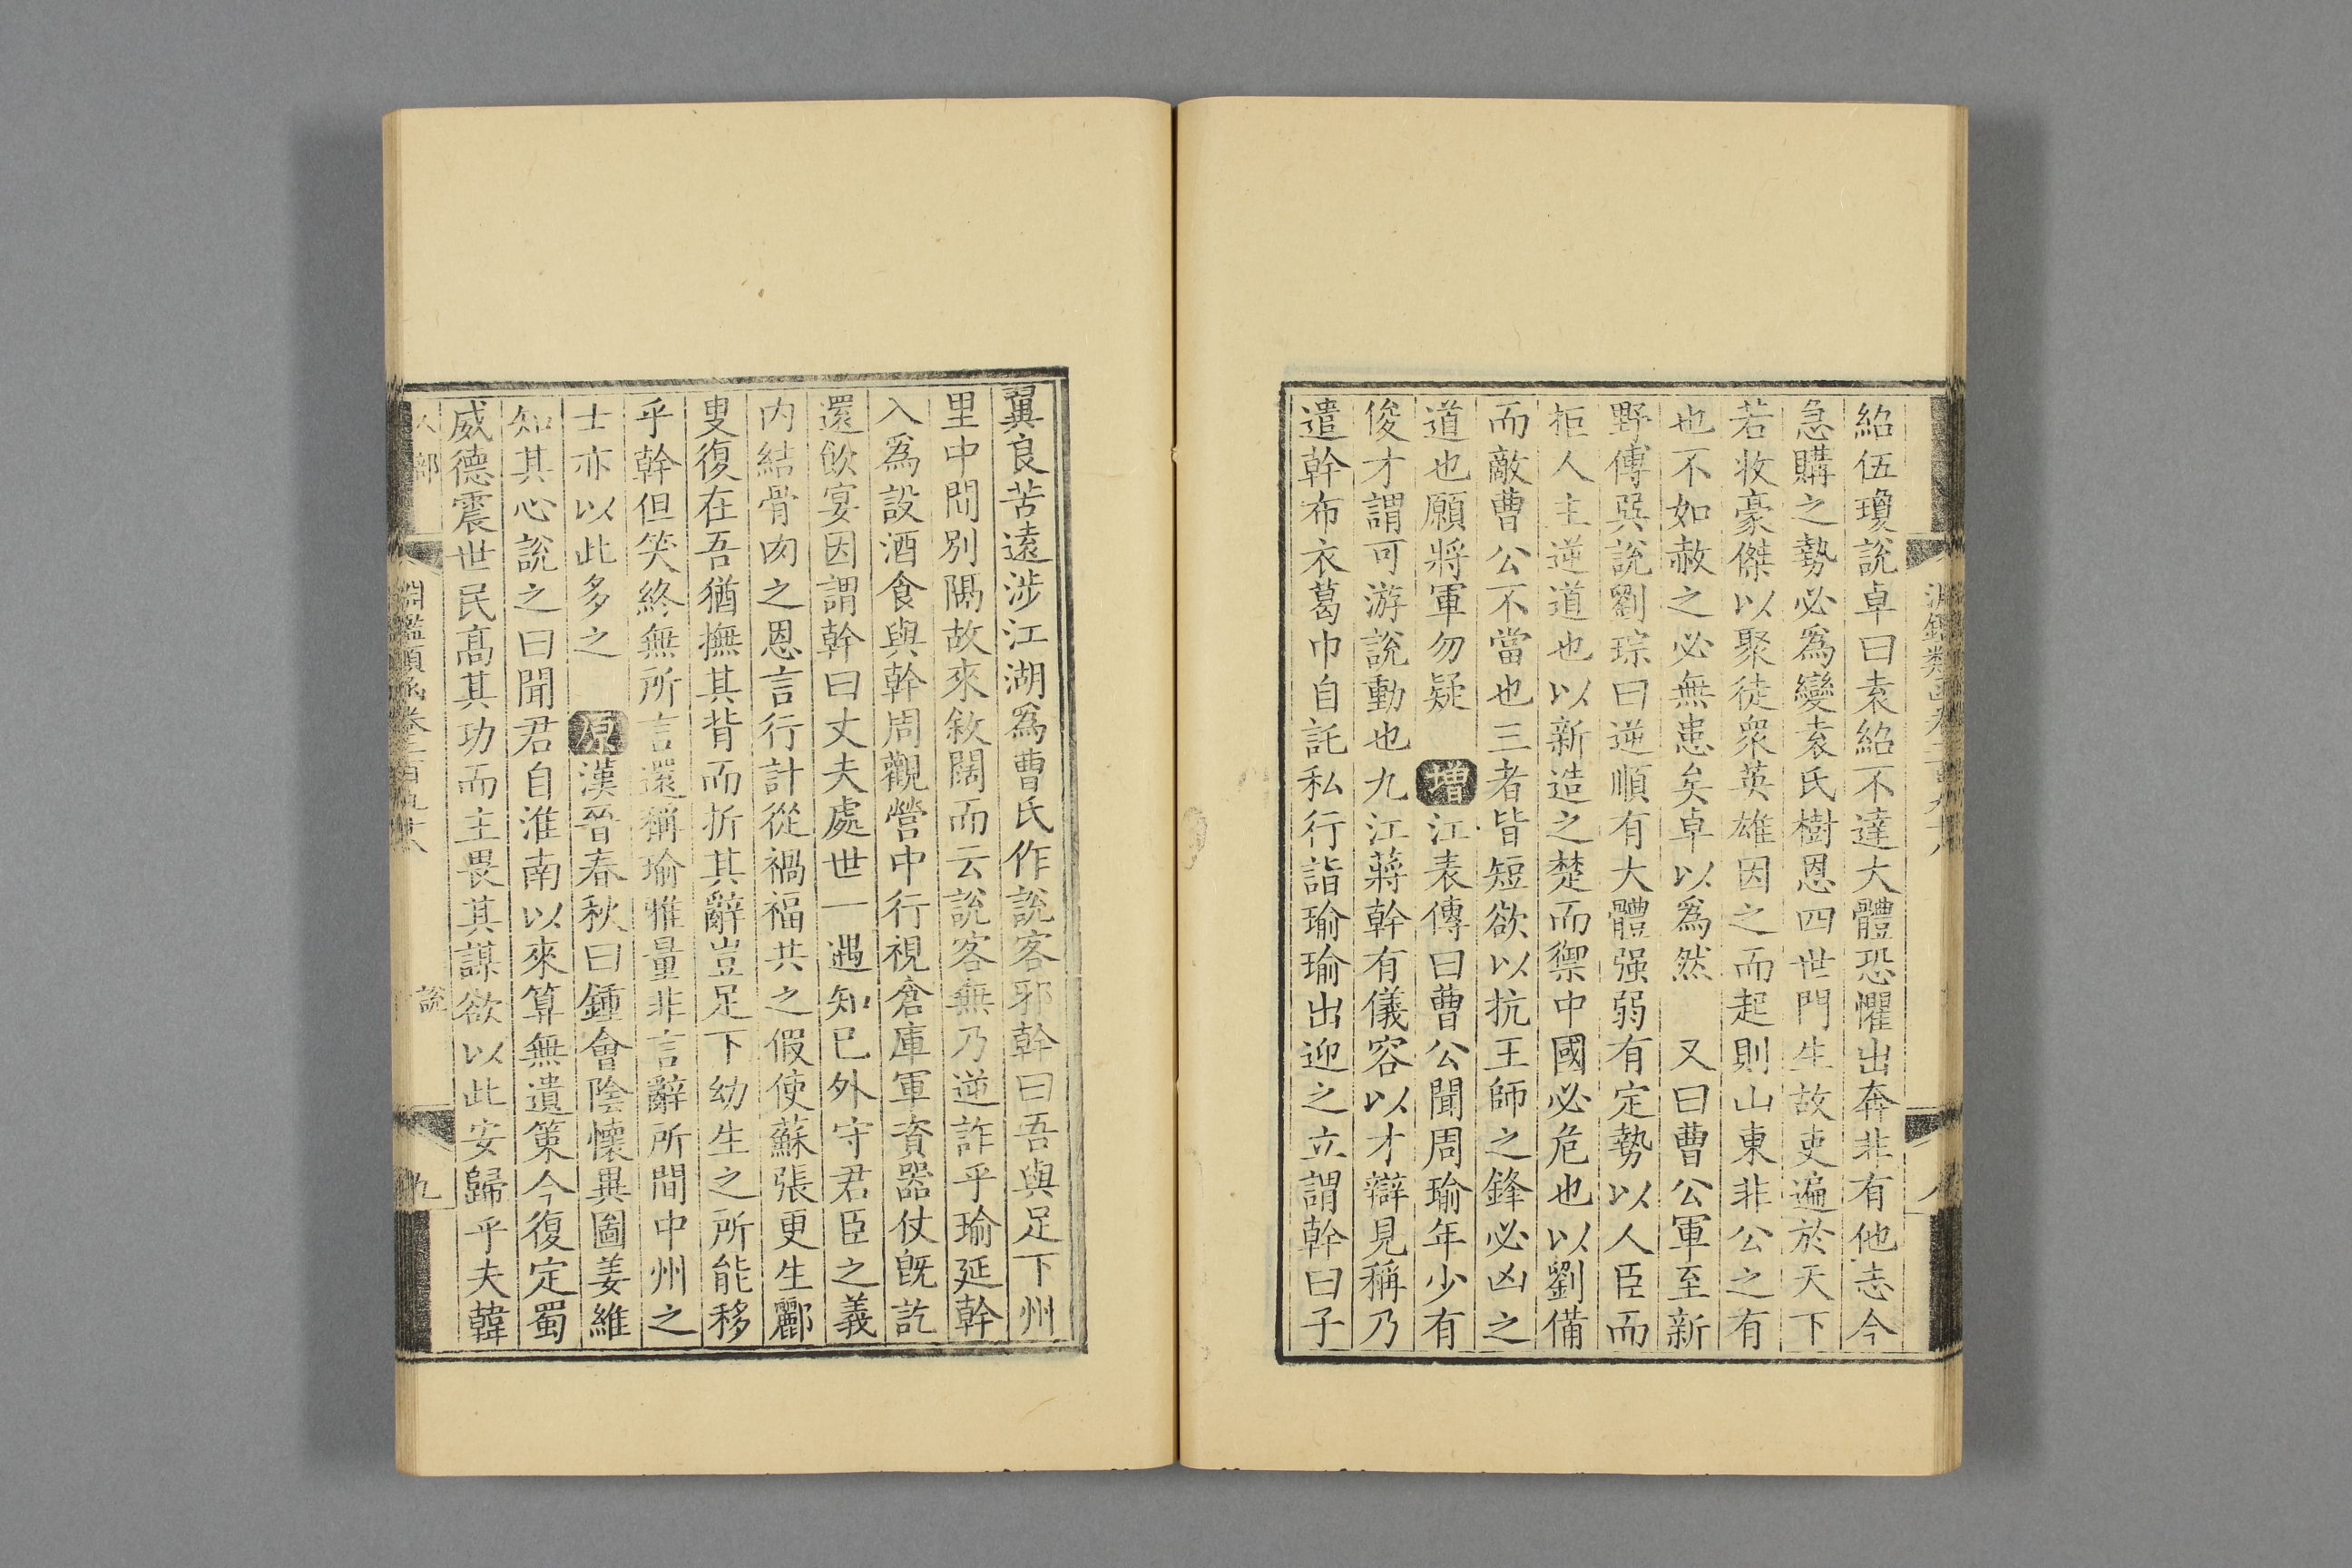 紹伍瓊說卓曰袁紹不達大體恐懼出奔非有他志今
急購之勢必爲變袁氏樹恩四世門生故吏遍於天下
若收豪傑以聚徒衆英雄因之而起則山東非公之有
也不如赦之必無患矣卓以爲然 又曰曹公軍至新
野傅巽說劉琮曰逆順有大體强弱有定勢以人臣而
拒人主逆道也以新造之楚而禦中國必危也以劉備
而敵曹公不當也三者皆短欲以抗王師之鋒必凶之
道也願將軍勿疑 增江表傳曰曹公聞周瑜年少有
俊才謂可游說動也九江蔣幹有儀容以才辯見稱乃
遣幹布衣葛巾自託私行詣瑜瑜出迎之立謂幹曰子
翼良苦遠涉江湖爲曹氏作說客邪幹曰吾與足下州
里中間別隔故來敘闊而云說客無乃逆詐乎瑜延幹
入爲設酒食與幹周觀營中行視倉庫軍資器仗旣訖
還飮宴因謂幹曰丈夫處世一遇知已外守君臣之義
內結骨肉之恩言行計從禍福共之假使蘇張更生酈
叟復在吾猶撫其背而折其辭豈足下幼生之所能移
乎幹但笑終無所言還稱瑜雅量非言辭所間中州之
士亦以此多之 原漢晉春秋曰鍾會陰懷異圖姜維
知其心說之曰聞君自淮南以來算無遺策今復定蜀
威德震世民高其功而主畏其謀欲以此安歸乎夫韓
人部
淵鑑類函卷二百九十八
說
九